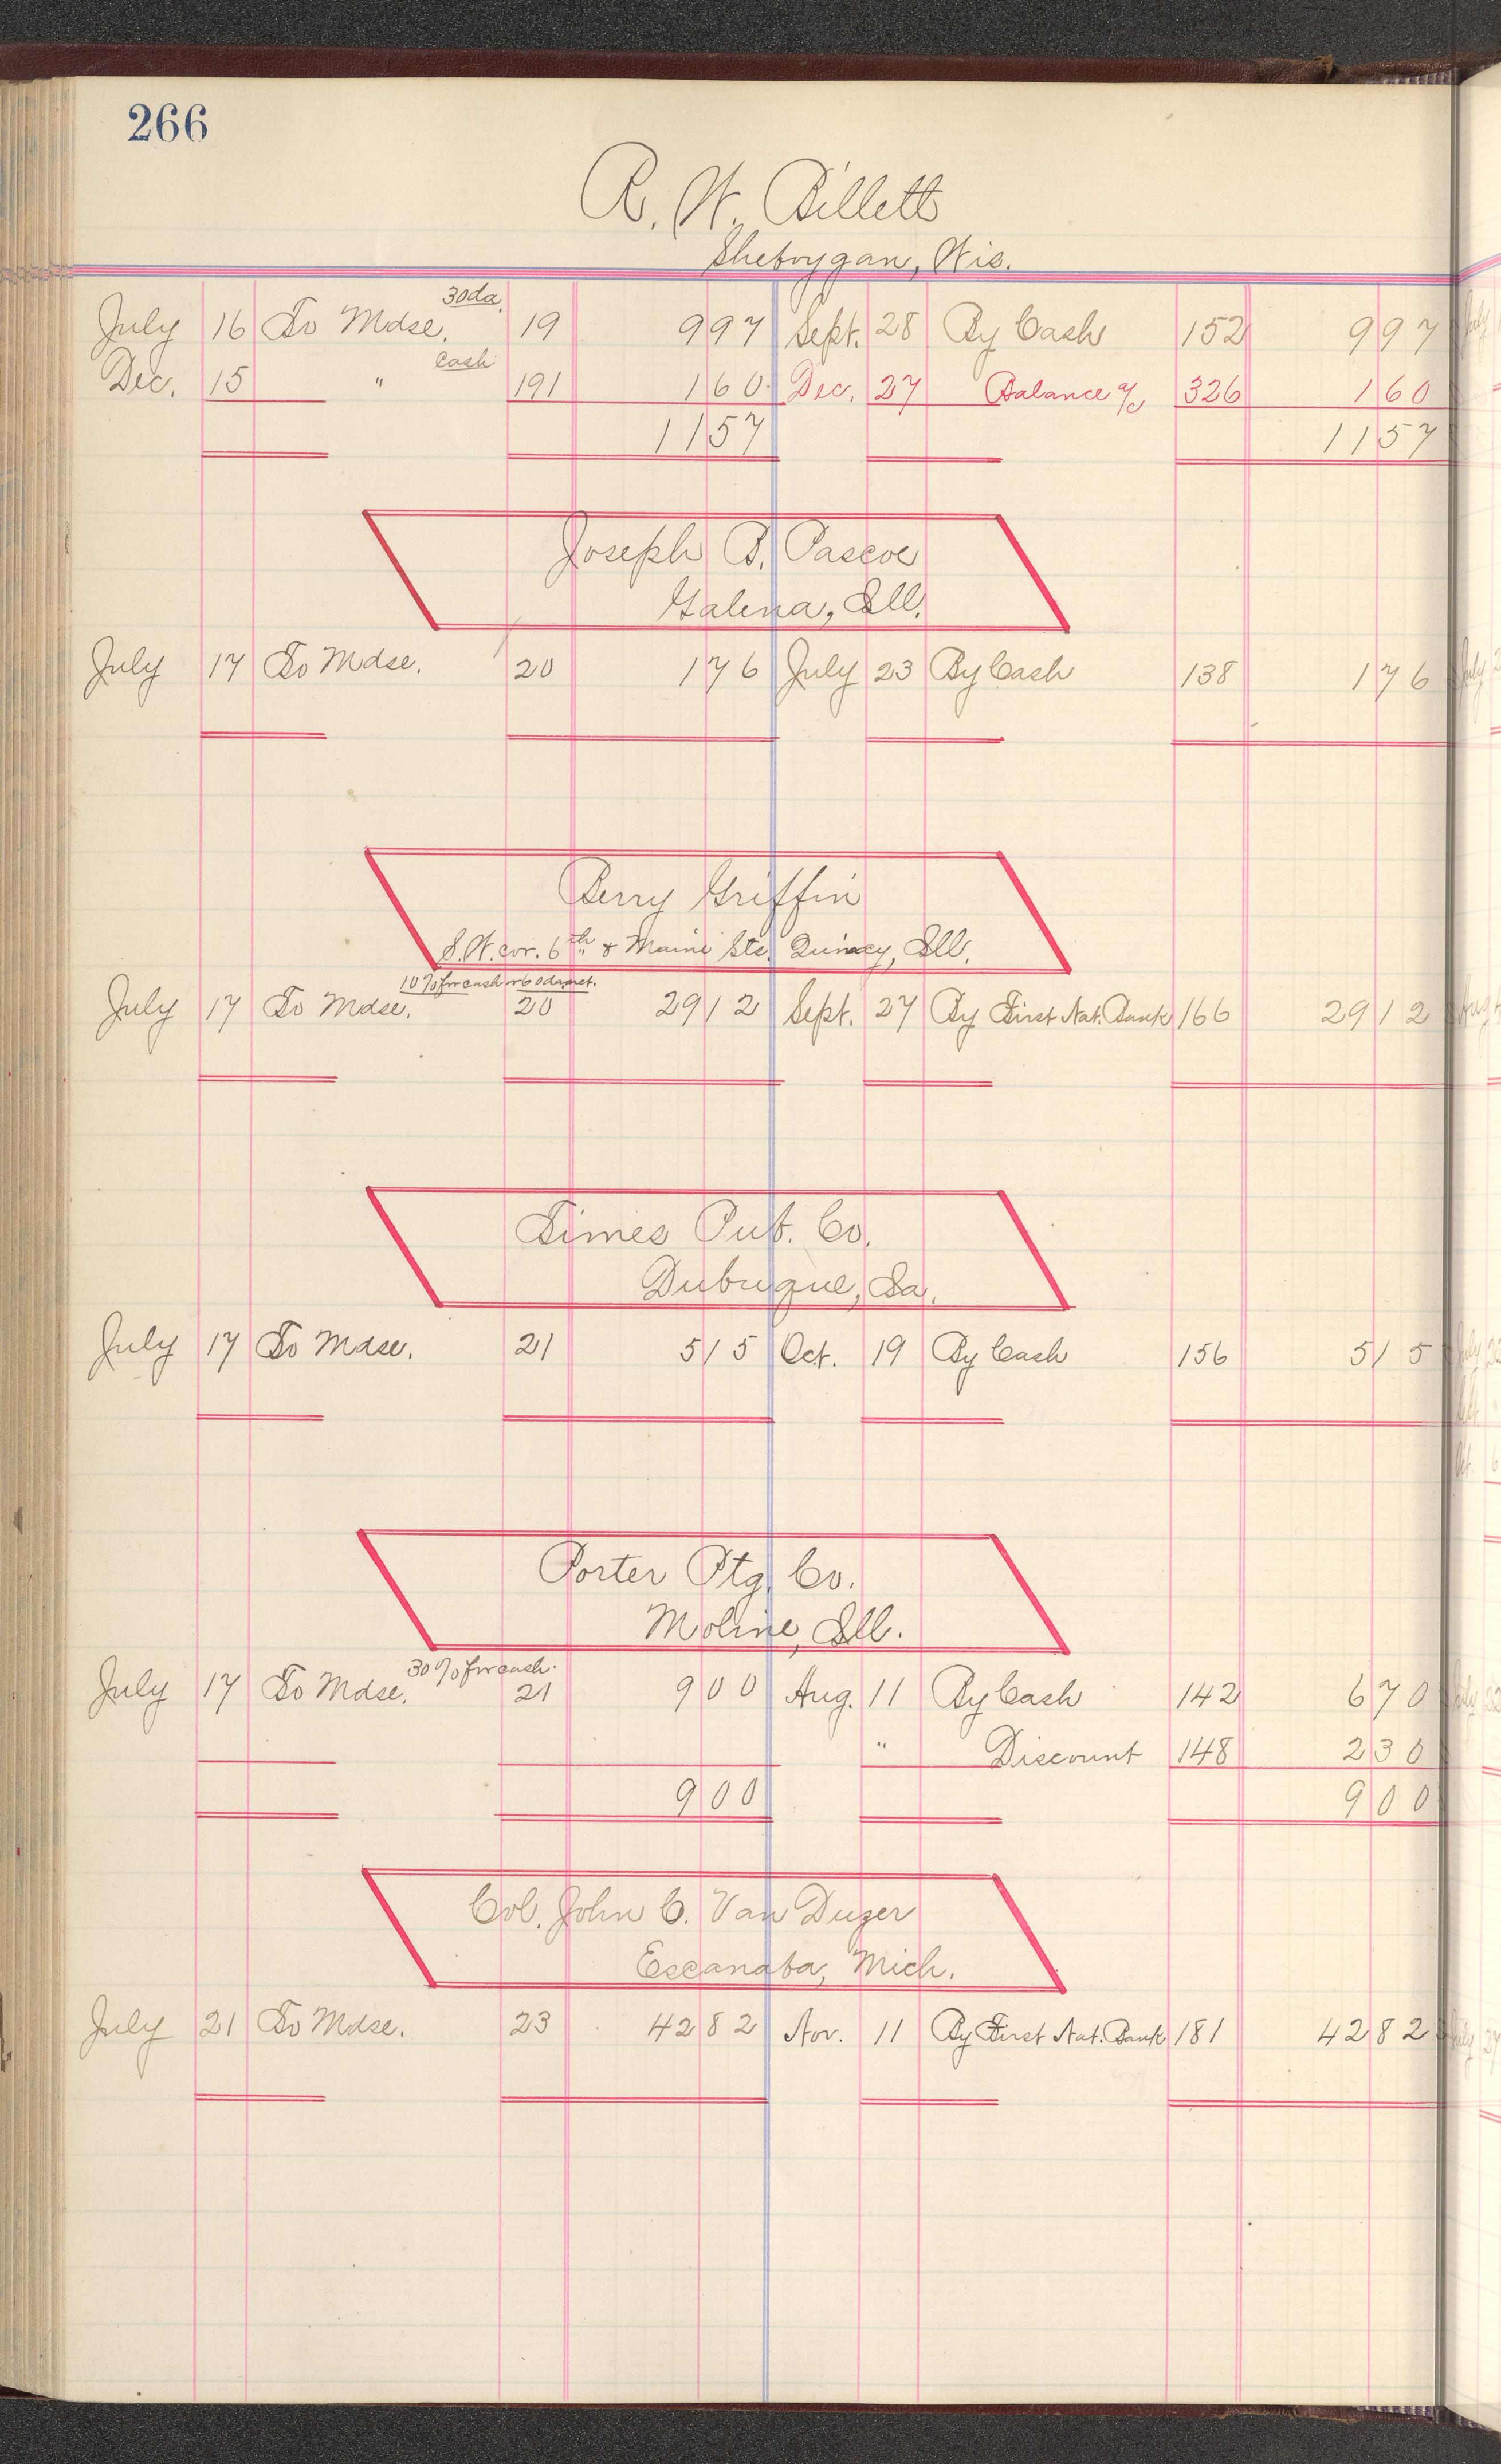 266
R. W. Billett
Sheboygan, Wis.
30da.
July 16 To Mdse. 19 997 Sept. 28 By Cash 152 997
Cash
Dec. 15 " 191 160 Dec. 27 Balance a/c 326 160
1157 1157
Joseph B. Pascoe
Galena, Ill.
July 17 To Mdse. 20 176 July 23 By Cash 138 176
Berry Griffin
S.W. cor. 6th & Maine Sts. Quincy, Ill.
10% for cash or 60 da net.
July 17 To Mdse. 20 2912 Sept. 27 By First Nat. Bank 166 2912
Times Pub. Co.
Dubuque, Ia.
July 17 To Mdse. 21 515 Oct. 19 By Cash 156 515
Porter Ptg. Co.
Moline, Ill.
30% for cash.
July 17 To Mdse. 21 900 Aug. 11 By Cash 142 670
" Discount 148 230
900 900
Col. John C. Van Duzer
Escanaba, Mich.
July 21 To Mdse. 23 4282 Nov. 11 By First Nat. Bank 181 4282